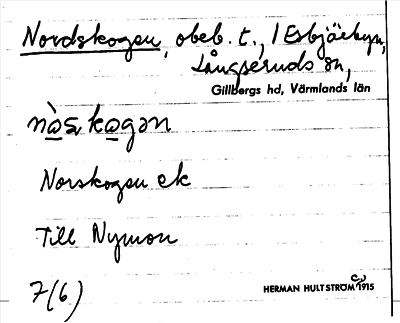 Nordskogen, obeb. t., I Esbjörbyn,
Långseruds sn,
Gillbergs hd, Värmlands län
nò̱s̱ko̱gǝn
Norskogen ek
Till Nymon
7(6)
HERMAN HULTSTRÖM c:a 1915